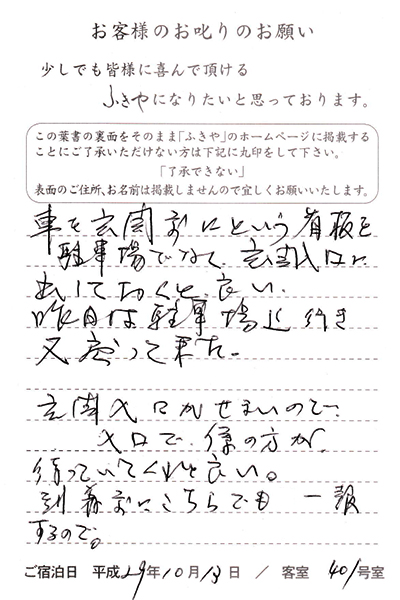 お客様のお叱りのお願い
少しでも皆様に喜んで頂ける
ふきやになりたいと思っております。
この葉書の裏面をそのまま「ふきや」のホームページに掲載する
ことにご了承いただけない方は下記に丸印をして下さい。
「了承できない」
表面のご住所、お名前は掲載しませんので宜しくお願いいたします。
車を玄関前にという看板を
駐車場でなく、玄関入口に
出しておくと良い。
昨日は駐車場迄行き
又戻って来た。
玄関入口がせまいので、
入口で、係の方が、
待っていてくれと良い。
到着前にこちらでも 一報
するので。
ご宿泊日 平成29年10月13日 / 客室 401号室